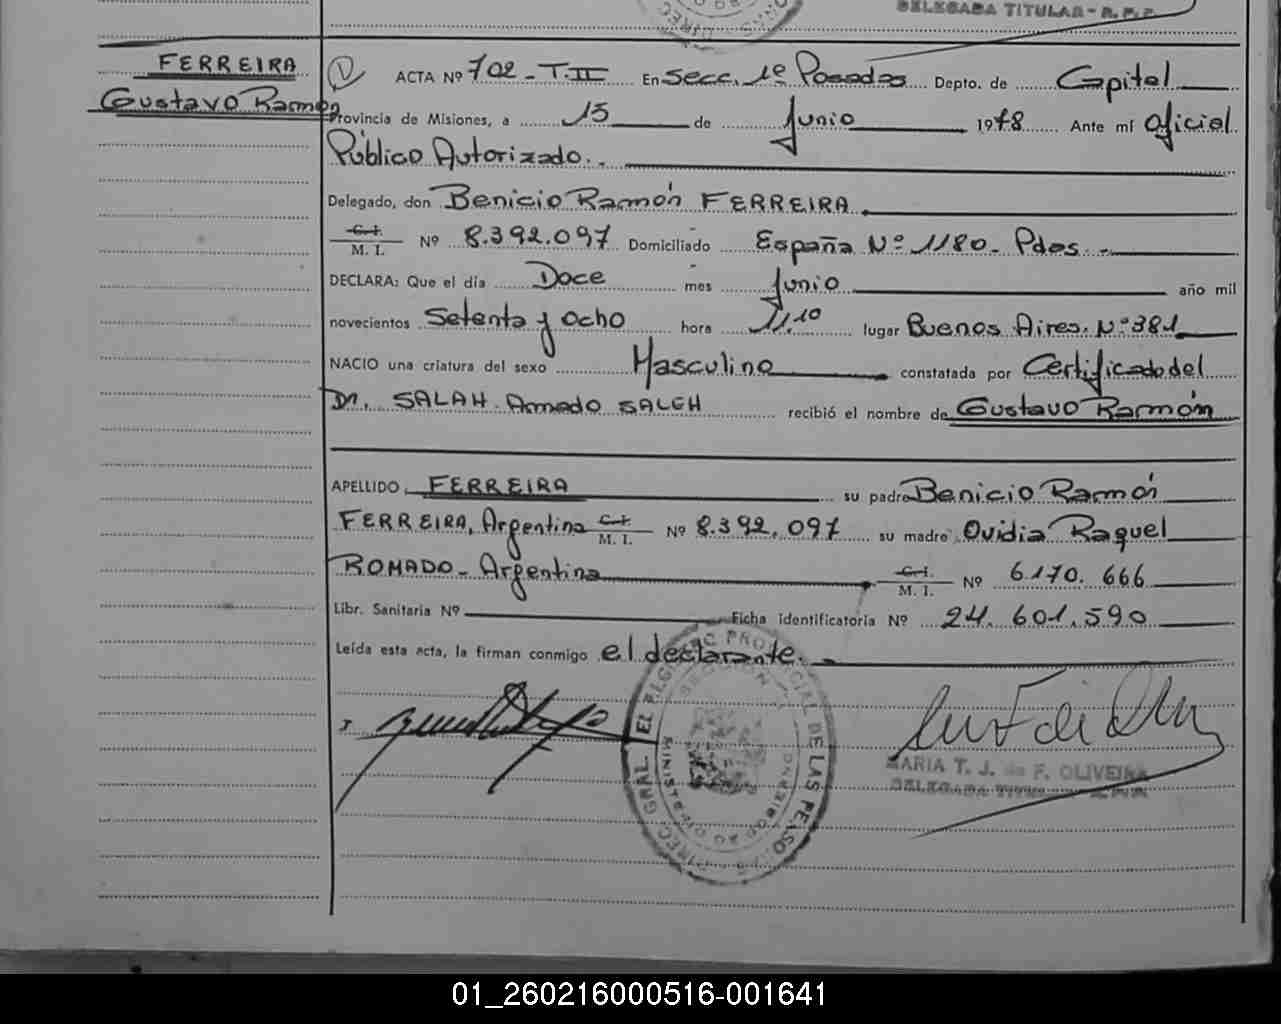 DELEGADA TITULAR - R. P. P.
FERREIRA
Gustavo Ramón
ACTA Nº 702 - T. II En Secc. 1º Posadas Depto. de Capital
Provincia de Misiones, a 15 de Junio 1978 Ante mí Oficial
Público Autorizado.
Delegado, don Benicio Ramón FERREIRA
C. I.
M. I. Nº 8.392.097 Domiciliado España Nº 1180 - Pdas.
DECLARA: Que el día Doce mes Junio año mil
novecientos Setenta y Ocho hora 11,10 lugar Buenos Aires Nº 381
NACIO una criatura del sexo Masculino constatada por Certificado del
Dr. SALAH Amado SALEH recibió el nombre de Gustavo Ramón
APELLIDO FERREIRA su padre Benicio Ramón
FERREIRA, Argentina C. I. M. I. Nº 8.392.097 su madre Ovidia Raquel
ROMADO - Argentina C. I. M. I. Nº 6170.666
Libr. Sanitaria Nº Ficha Identificatoria Nº 24.601.590
Leída esta acta, la firman conmigo el declarante.
MARIA T. J. de F. OLIVEIRA
DELEGADA TITULAR
01_260216000516-001641